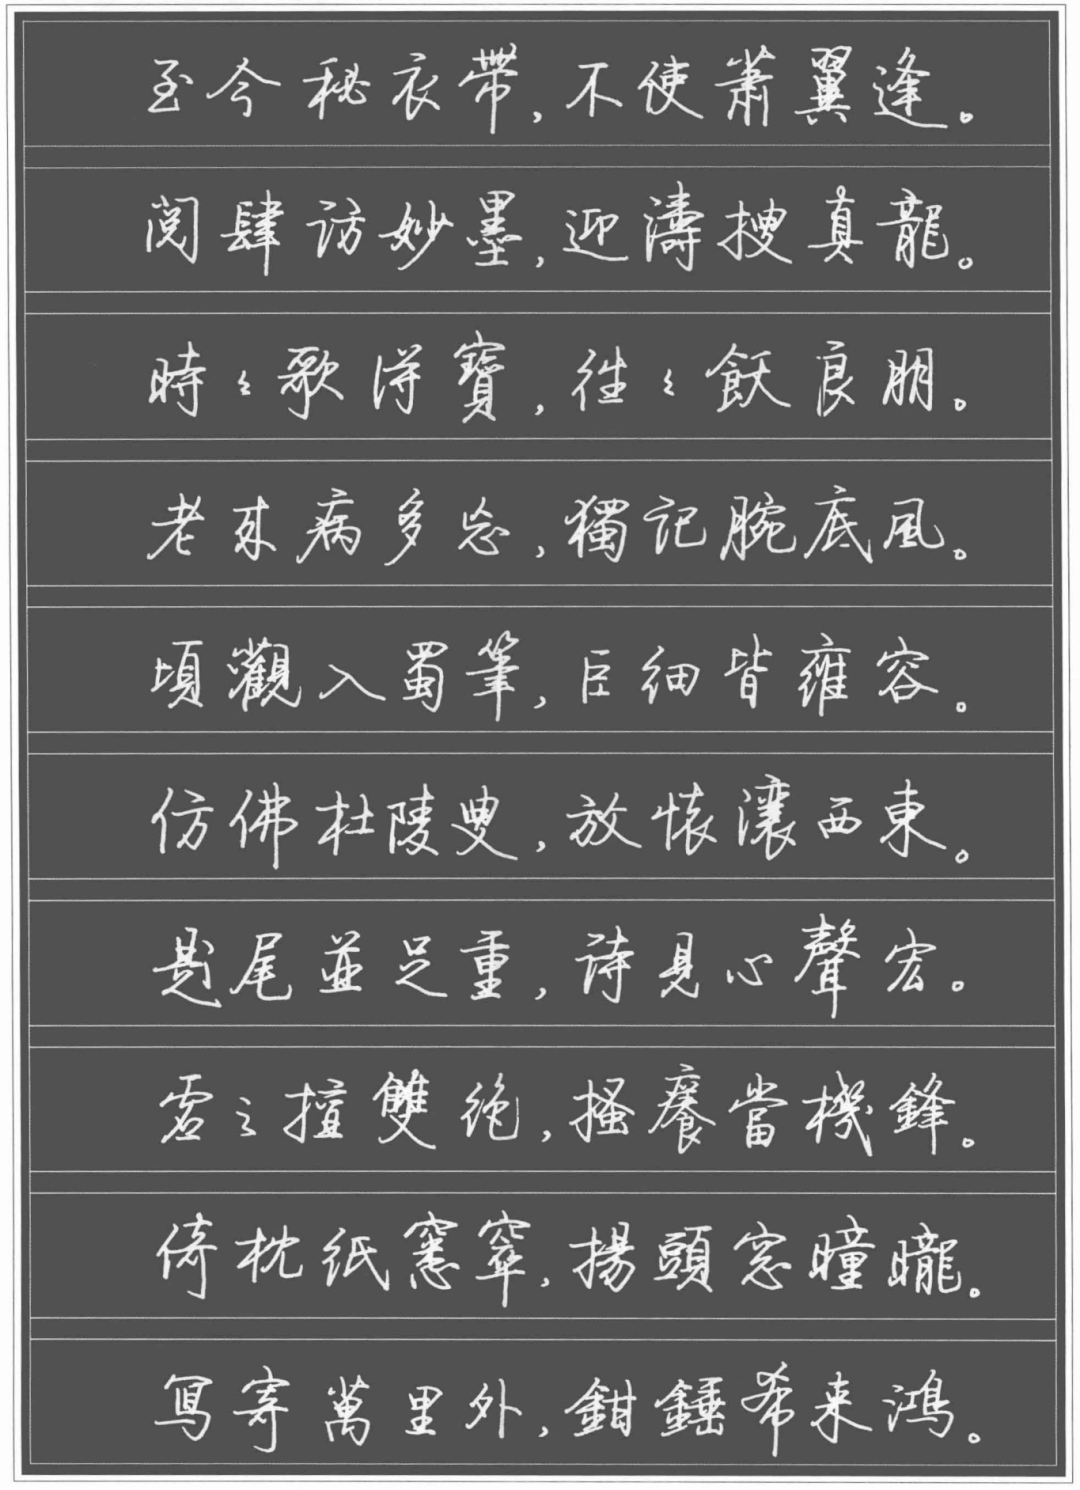 至今秘衣帶，不使蕭翼逢。
閱肆訪妙墨，迎濤搜真龍。
時々歌得寶，往々飫良朋。
老來病多忘，獨記腕底風。
頃觀入蜀筆，巨細皆雍容。
仿佛杜陵叟，放懷瀼西東。
題尾並足重，詩見心聲宏。
雲之擅雙絕，搔癢當機鋒。
倚枕紙窸窣，揚頭窓瞳曨。
寫寄萬里外，鉗錘希來鴻。